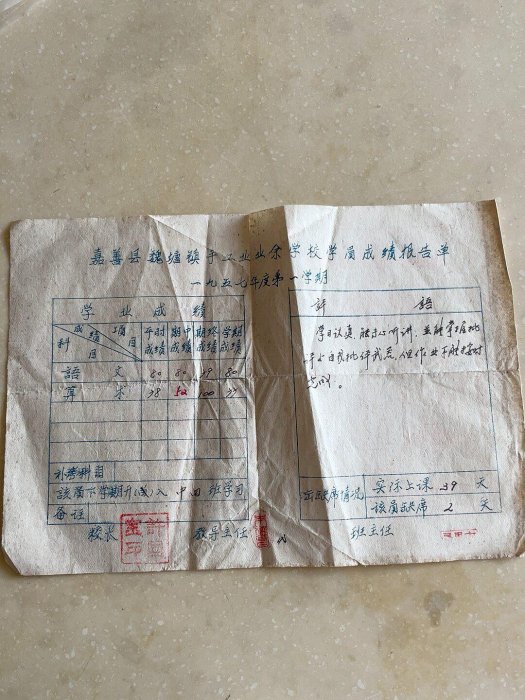 嘉善县魏塘镇手工业业余学校学员成绩报告单
一九五七年度第一学期
学业成绩
成绩 项目 科目 平时成绩 期中成绩 期终成绩 学期成绩
語文 80 80 79 80
算术 78 52 100 77
补考科目
該员下学期升(或)入 中四 班学习
备註
評語
学习认真,能专心听讲,并能掌握批
评与自我批评武器,但作业不能按时
完成。
出缺席情况 实际上课 39 天
該员缺席 2 天
校长 教导主任 班主任